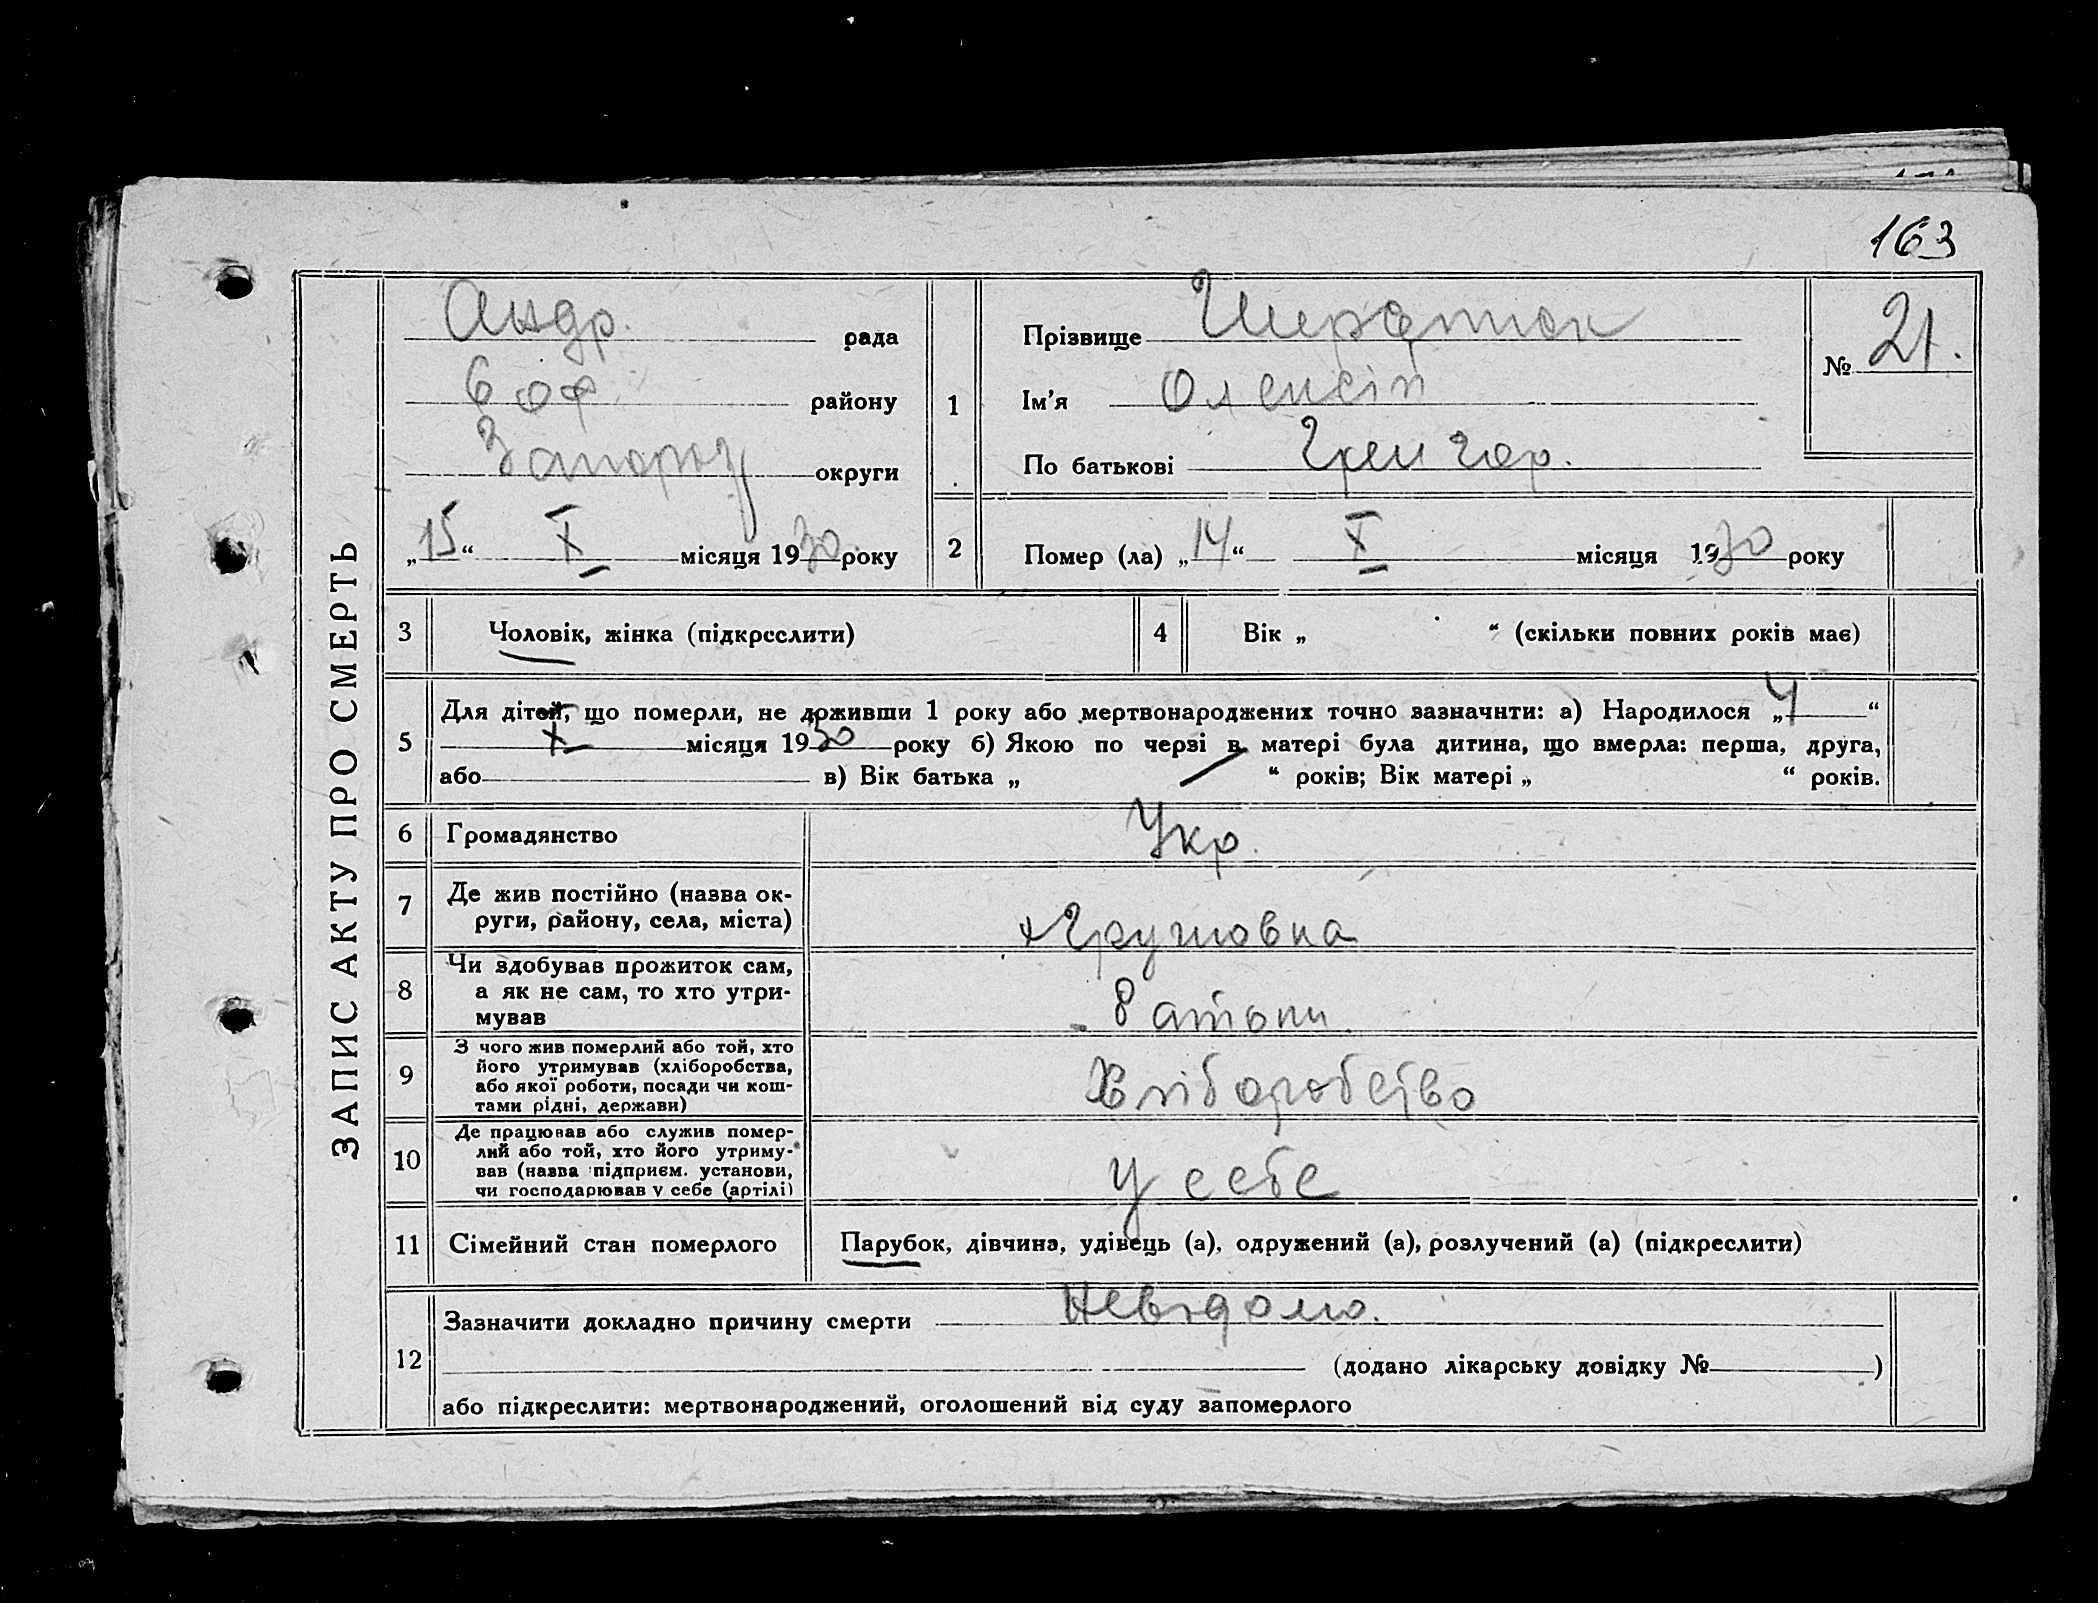 163
ЗАПИС АКТУ ПРО СМЕРТЬ
Андр. рада
Соф. району
Запорoз округи
„15“ X місяця 1930 року
1
Прізвище
Ім'я Олексій
По батькові Григор.
№ 21.
2 Помер (ла) „14“ X місяця 1930 року
3 Чоловік, жінка (підкреслити)
4 Вік „ “ (скільки повних років має)
5 Для дітей, що померли, не доживши 1 року або мертвонароджених точно зазначити: а) Народилося „4“
X місяця 1930 року б) Якою по черзі в матері була дитина, що вмерла: перша, друга,
або в) Вік батька „ “ років; Вік матері „ “ років.
6 Громадянство Укр.
7 Де жив постійно (назва ок-
руги, району, села, міста) Грушовка
8 Чи здобував прожиток сам,
а як не сам, то хто утри-
мував Батьки
9 З чого жив померлий або той, хто
його утримував (хліборобства,
або якої роботи, посади чи кош-
тами рідні, держави) Хліборобство
10 Де працював або служив помер-
лий або той, хто його утриму-
вав (назва підприєм. установи,
чи господарював у себе (артілі) У себе
11 Сімейний стан померлого Парубок, дівчина, удівець (а), одружений (а), розлучений (а) (підкреслити)
12 Зазначити докладно причину смерти Невідомо.
(додано лікарську довідку № )
або підкреслити: мертвонароджений, оголошений від суду запомерлого